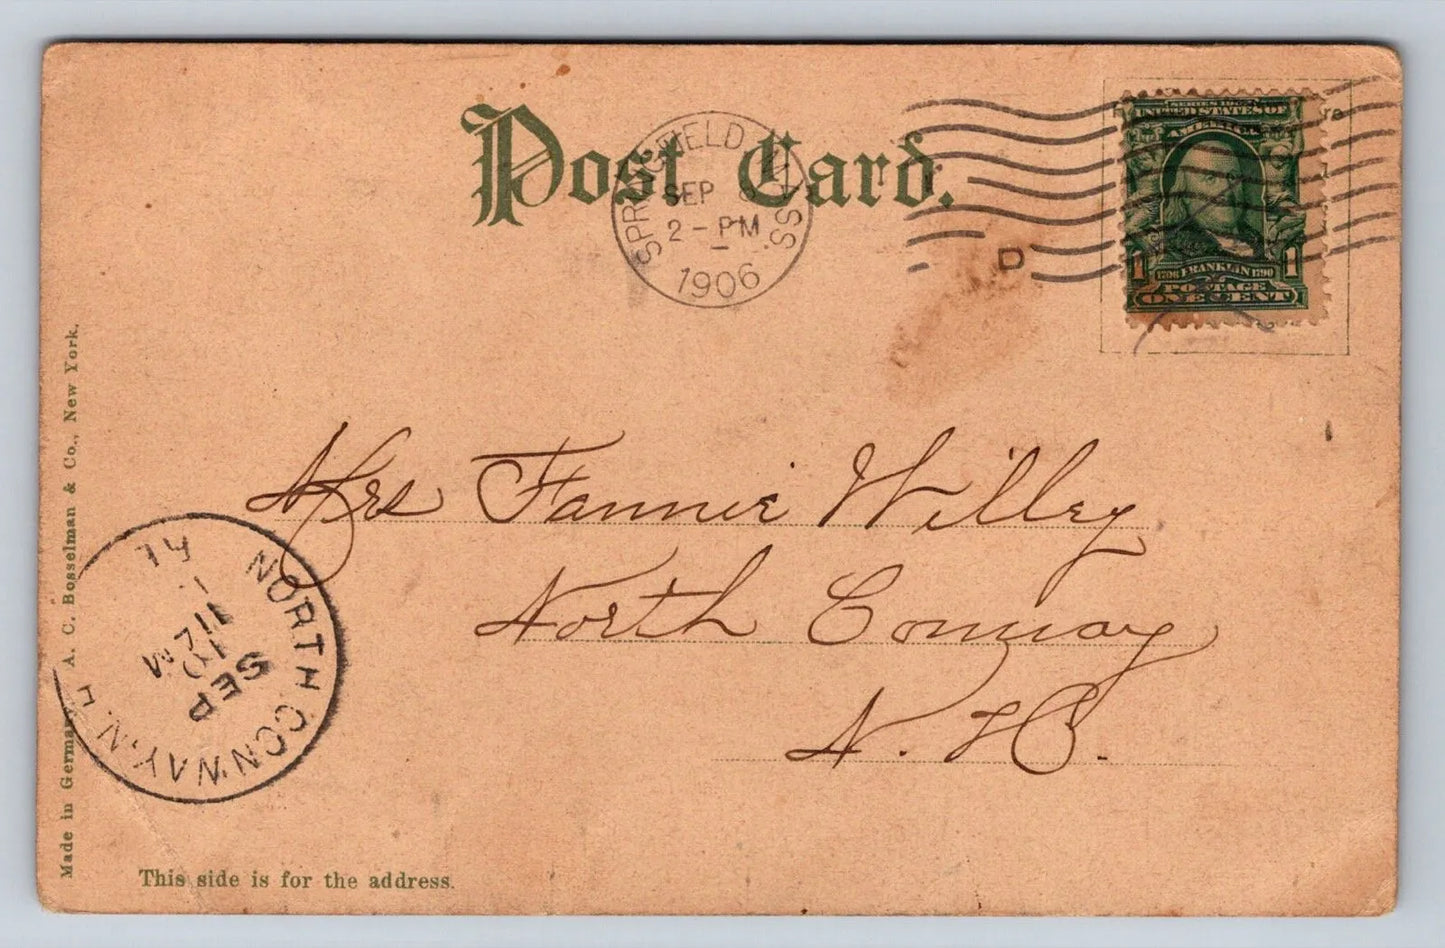 Post Card.
SPRINGFIELD, MASS.
SEP
2 - PM
1906
D
SERIES 1902
UNITED STATES OF
AMERICA
1 1706 FRANKLIN 1790 1
POSTAGE
ONE CENT
Mrs Fannie Willey
North Conway
N. H.
NORTH CONWAY, N.H.
SEP
M
Made in Germany. A. C. Bosselman & Co., New York.
This side is for the address.